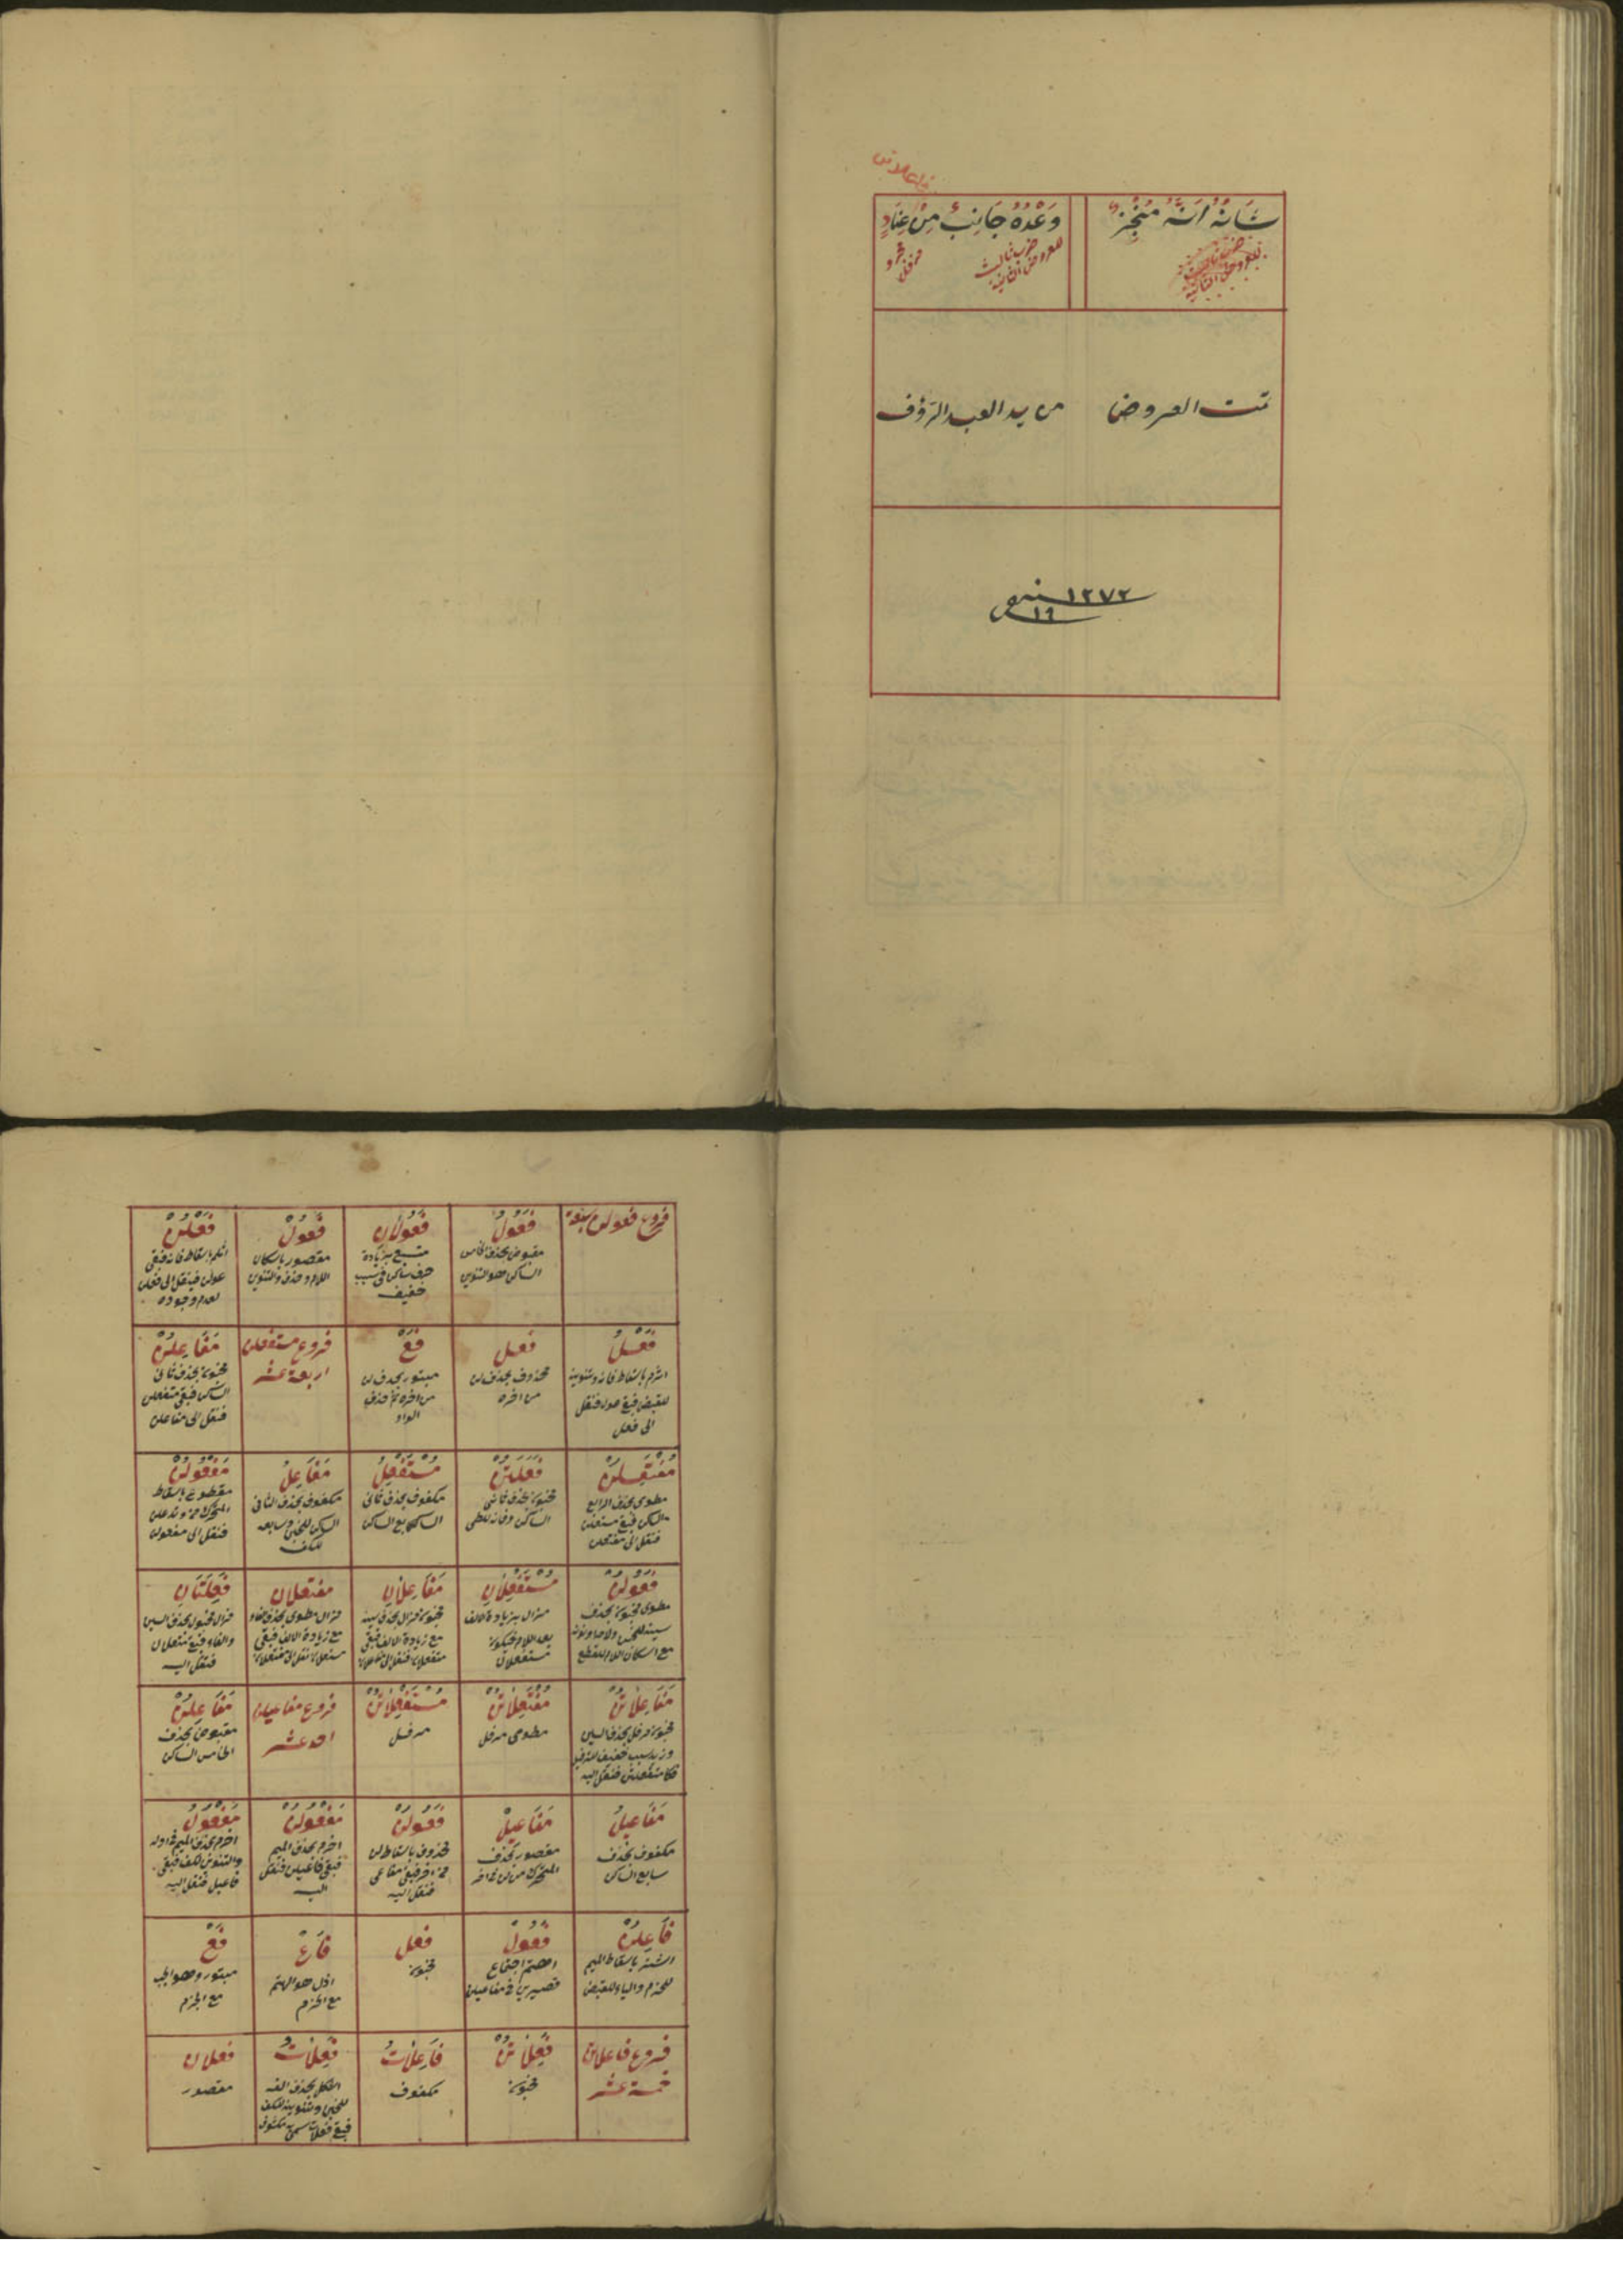 فاعلاتن
شَانُهُ اَنَّهُ مُنْجِزٌ
وَعْدُهُ جَانِبٌ مِنْ عِنَادٍ
ضرب ثالث
للعروض الثانية
مجزو
مرفل
تمت العروض من يد العبد الرؤف
سنه ١٢٧٢
١٦
فروع فعولن سبعة
فَعُولُ
مقبوض بحذف الخامس
الساكن هو التنوين
فَعُولَانْ
مسبغ بزيادة
حرف ساكن فى سبب
خفيف
فَعُولْ
مقصور باسكان
اللام وحذف التنوين
فَعْلُنْ
اثلم باسقاط فائه فبقى
عولن فينقل الى فعلن
لعدم وجوده
فَعْلُ
اثرم باسقاط فائه وتنوينه
للقبض فبقى عول فنقل
الى فعل
فعل
محذوف بحذف لن
من اخره
فَعْ
مبتور بحذف لن
من اخره ثم حذف
الواو
فروع مستفعلن
اربعة عشر
مَفَاعِلُنْ
مخبون بحذف ثانى
الساكن فبقى متفعلن
فنقل الى مفاعلن
مُفْتَعِلُنْ
مطوى بحذف الرابع
الساكن فبقى مستعلن
فنقل الى مفتعلن
فَعِلَتُنْ
مخبون بحذف ثانى
الساكن وفائه للطى
مُسْتَفْعِلُ
مكفوف بحذف ثانى
الساكن سابع الساكن
مَفَاعِلُ
مكفوف بحذف الثانى
الساكن للخبن وسابعه
للكف
مَفْعُولُنْ
مقطوع باسقاط
المتحرك من وتد علن
فنقل الى مفعولن
فَعُولُنْ
مطوى مخبون بحذف
سينه للخبن
مع اسكان اللام للقطع
مُسْتَفْعِلَانْ
مزال بزيادة الالف
بعد اللام فيكون
مستفعلان
مَفَاعِلَانْ
مخبون مزال بحذف سينه
مع زيادة الالف فبقى
متفعلان فنقل الى مفاعلان
مفتعلان
مزال مطوى بحذف فاء
مع زيادة الالف فبقى
مستعلان نقل الى مفتعلان
فَعِلَتَانِ
مزال مخبول بحذف السين
والفاء فبقى متعلان
فنقل اليه
مَفَاعِلَاتُنْ
مخبون مرفل بحذف السين
وزيد سبب خفيف للترفيل
فنقل اليه
مُفْتَعِلَاتُنْ
مطوى مرفل
مُسْتَفْعِلَاتُنْ
مرفل
فروع مفاعيلن
احد عشر
مَفَاعِلُنْ
مقبوض بحذف
الخامس الساكن
مَفَاعِيلُ
مكفوف بحذف
سابع الساكن
مَفَاعِيلْ
مقصور بحذف
المتحرك من لن فى اخر
فَعُولُنْ
محذوف باسقاط لن
من اخر فبقى مفاعى
فنقل اليه
مَفْعُولُنْ
اخرم بحذف الميم
فبقى فاعيلن فنقل
اليه
مَفْعُولُ
اخرم بحذف الميم فى اوله
والتنوين للكف فبقى
فاعيل فنقل اليه
فَاعِلُنْ
اشتر باسقاط الميم
للخرم والياء للقبض
فَعُولْ
اهتم اجتماع
قصيرين فى مفاعيلن
فعل
مخبون
فَاعْ
ازل هو الهتم
مع الخرم
فَعْ
مبتور وهو الجب
مع الخرم
فروع فاعلاتن
خمسة عشر
فَعِلَاتُنْ
مخبون
فَاعِلَاتُ
مكفوف
فَعِلَاتُ
الشكل بحذف الفه
للخبن وتنوينه للكف
فبقى فعلات سمى مكفوف
فعلان
مقصور